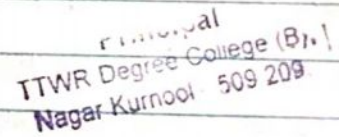 Principal
TTWR Degree College (B).
Nagar Kurnool 509 209